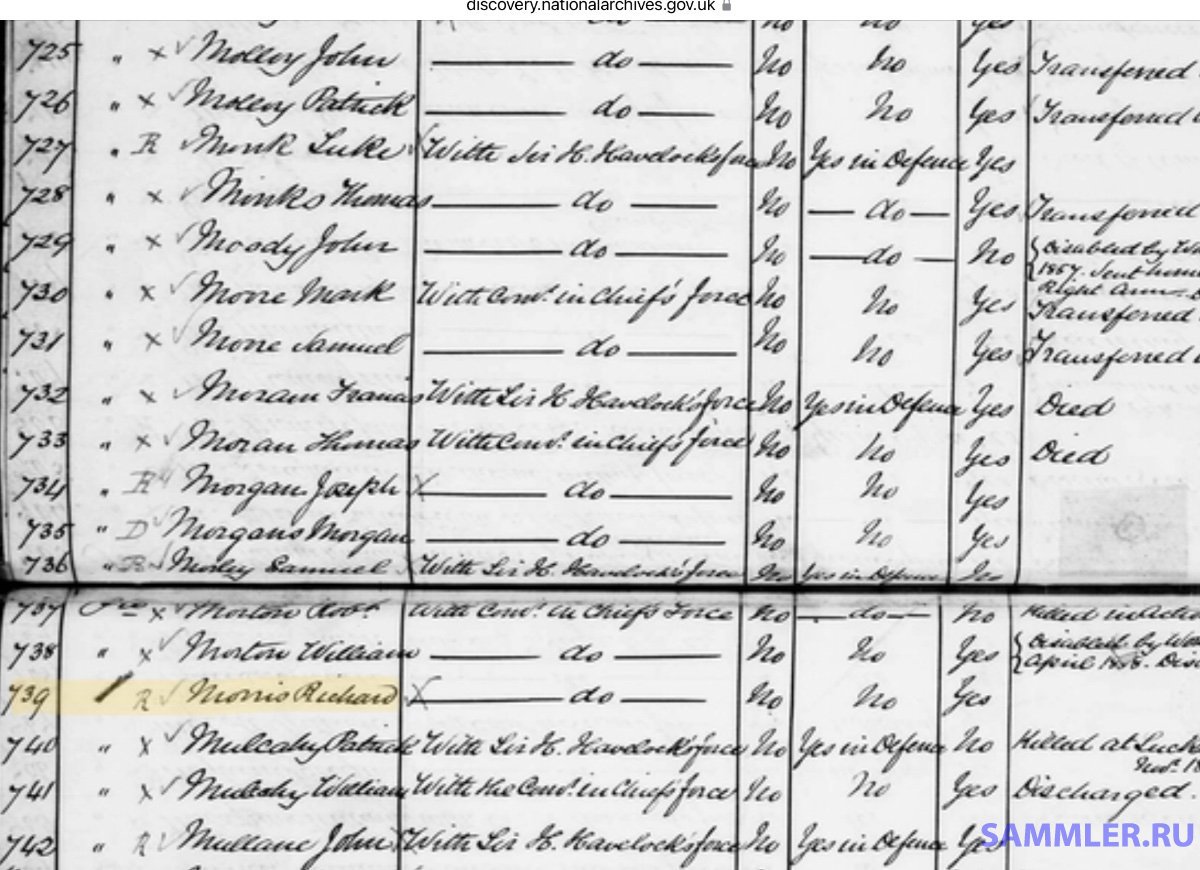 discovery.nationalarchives.gov.uk
725 " x ✓ Molloy John — do — No No Yes Transferred
726 " x ✓ Molloy Patrick — do — No No Yes Transferred
727 " R ✓ Monk Luke With Sir H. Havelock's force No Yes in Defence Yes
728 " x ✓ Monks Thomas — do — No — do — Yes Transferred
729 " x ✓ Moody John — do — No — do — No { Disabled by
1857. Sent home
Right Arm
730 " x ✓ Moore Mark With Comr. in Chief's force No No Yes Transferred
731 " x ✓ Moore Samuel — do — No No Yes Transferred
732 " x ✓ Moran Francis With Sir H. Havelock's force No Yes in Defence Yes Died
733 " x ✓ Moran Thomas With Comr. in Chief's force No No Yes Died
734 " R Morgan Joseph x — do — No No Yes
735 " D Morgans Morgan — do — No No Yes
736 " R Morley Samuel With Sir H. Havelock's force No Yes in Defence
737 x Morton Robt. With Comr. in Chief's Force No — do — No Killed in
738 " x ✓ Morton William — do — No No Yes { Disabled by
April 1858.
739 " R ✓ Morris Richard x — do — No No Yes
740 " x ✓ Mulcahy Patrick With Sir H. Havelock's force No Yes in Defence No Killed at
Novr.
741 " x ✓ Mulcahy William With the Comr. in Chief's force No No Yes Discharged.
742 " R ✓ Mullane John With Sir H. Havelock's force No Yes in Defence Yes
SAMMLER.RU